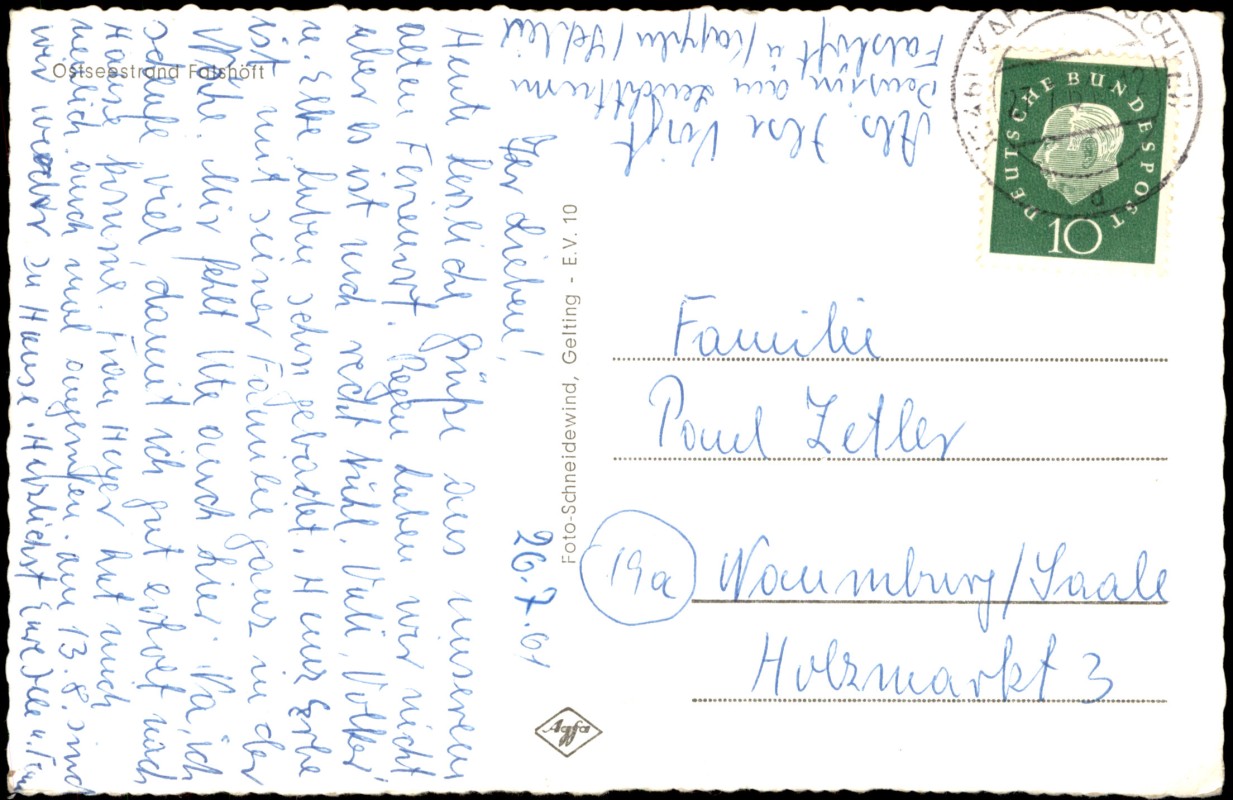 Ostseestrand Falshöft
Abs. Ilse Voigt
Pension am Leuchtturm
Falshöft ü/Kappeln/Schlei
26.7.61
Ihr Lieben!
Heute herzliche Grüße aus unserem
alten Ferienort. Regen haben wir nicht
aber es ist noch recht kühl. Uli, Volker
u. Elke haben schon gebadet. Heinz
ist mit seiner Familie ganz in der
Nähe. Mir fehlt Ute auch hier. Na, ich
schlafe viel, damit ich gut erholt nach
Hause komme. Frau Heyer hat mich
neulich auch mal angerufen. am 13.8. sind
wir wieder zu Hause. Herzlichst Eure Ilse u. Fam
Foto-Schneidewind, Gelting - E.V. 10
Agfa
DEUTSCHE BUNDESPOST
10
Familie
Paul Zetler
19a Naumburg/Saale
Holzmarkt 3